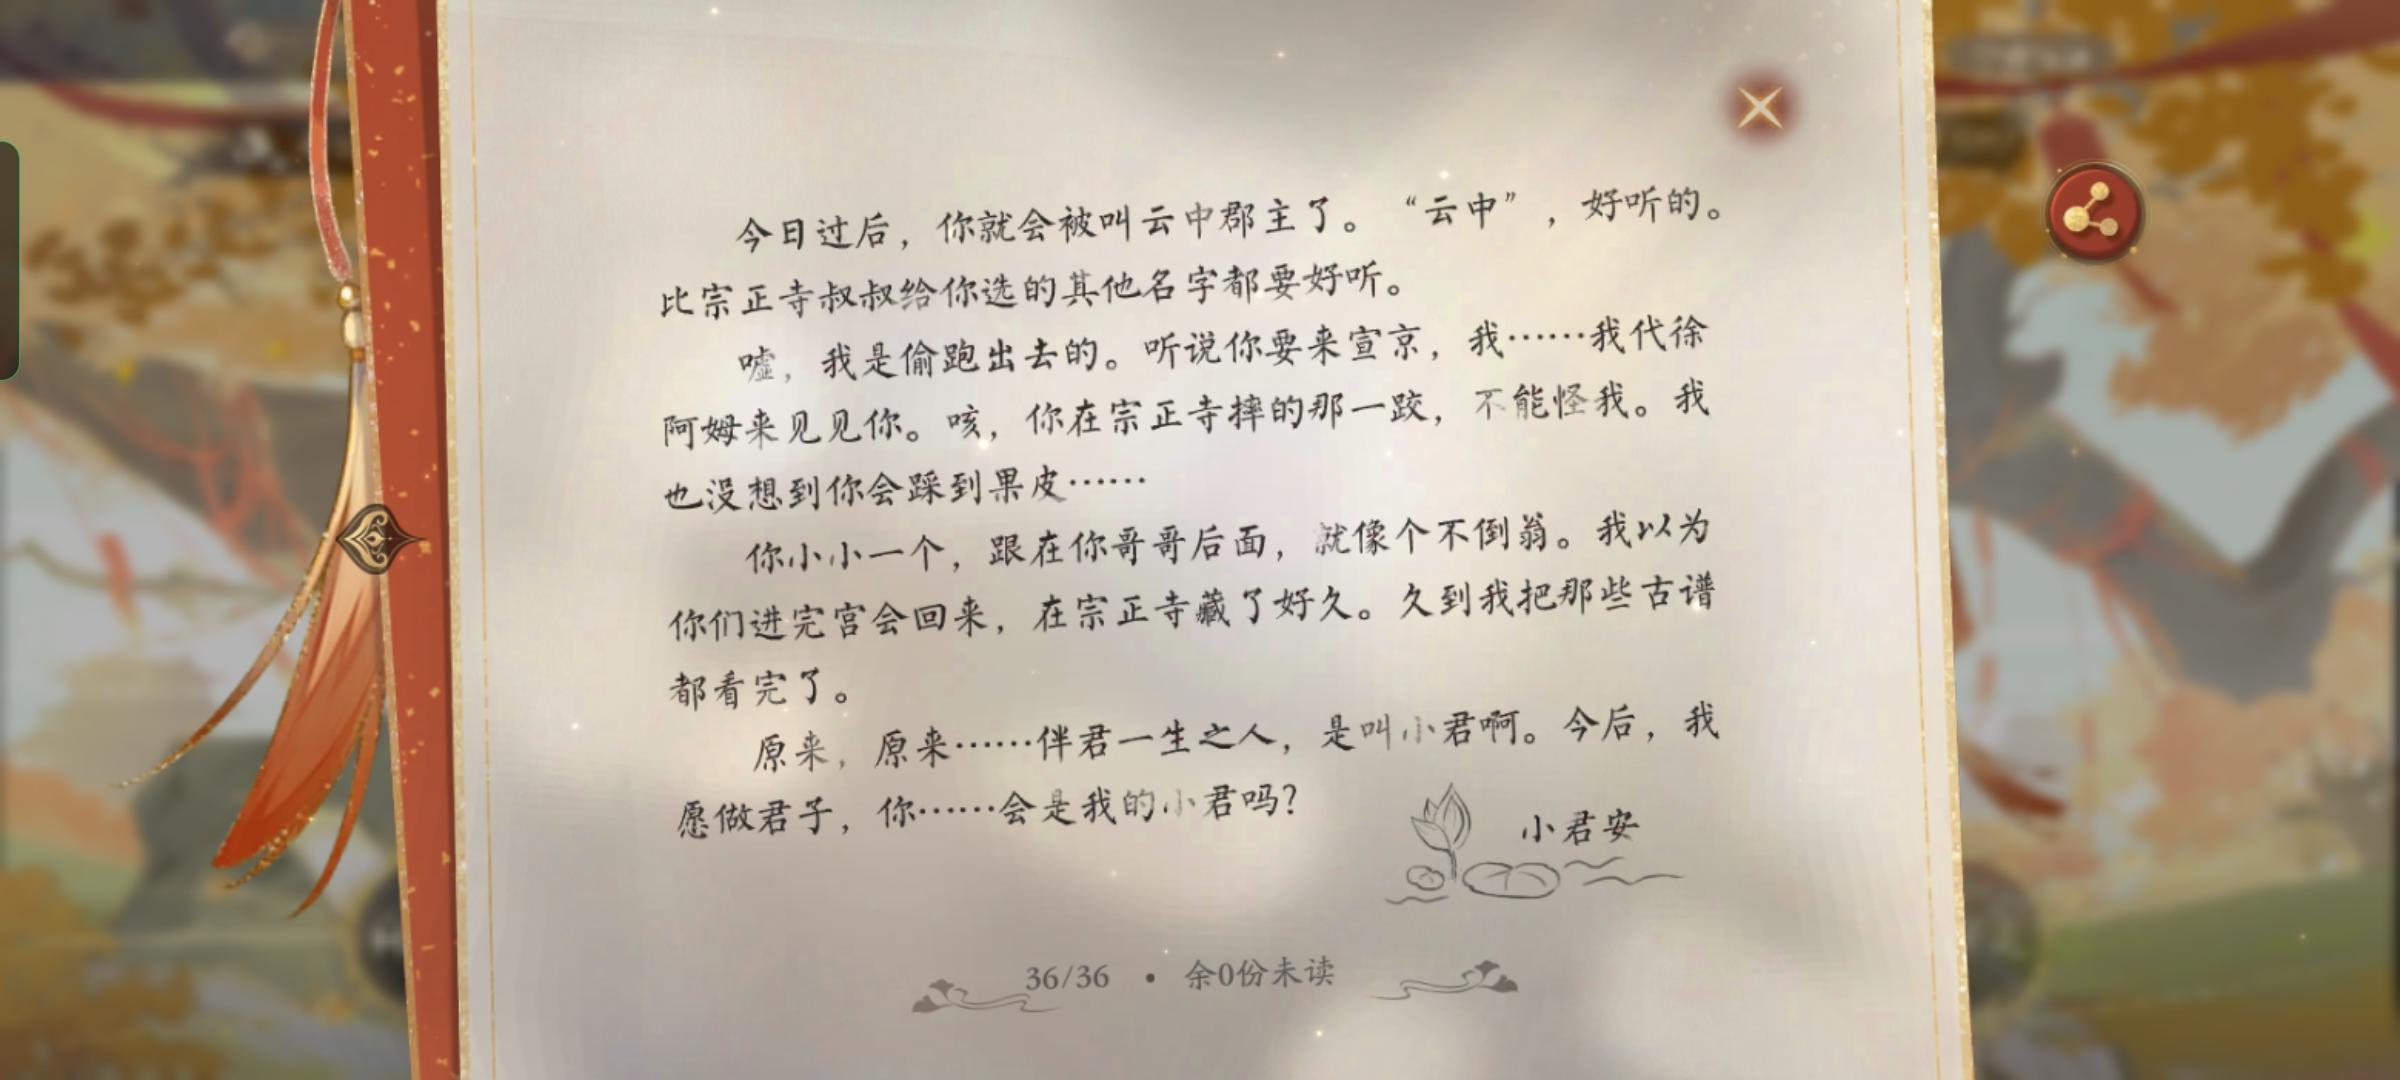 今日过后，你就会被叫云中郡主了。“云中”，好听的。
比宗正寺叔叔给你选的其他名字都要好听。
嘘，我是偷跑出去的。听说你要来宣京，我……我代徐
阿姆来见见你。咳，你在宗正寺摔的那一跤，不能怪我。我
也没想到你会踩到果皮……
你小小一个，跟在你哥哥后面，就像个不倒翁。我以为
你们进完宫会回来，在宗正寺藏了好久。久到我把那些古谱
都看完了。
原来，原来……伴君一生之人，是叫小君啊。今后，我
愿做君子，你……会是我的小君吗？
小君安
36/36 • 余0份未读